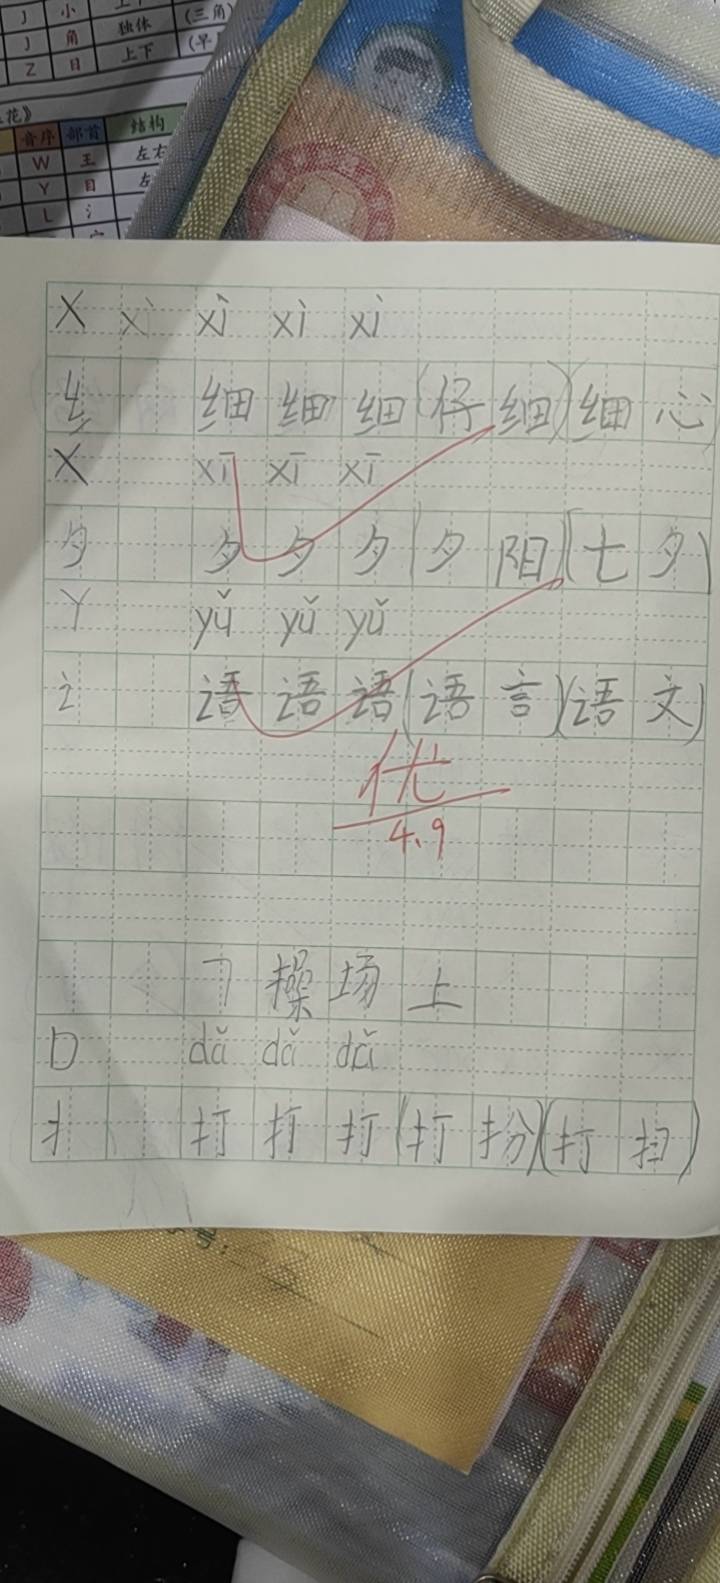 J 小 (三角)
J 角 独体
Z 目 上下 (早
花》
音序 部首 结构
W 王 左右
Y 目 左
L 氵
X xì xì xì xì
纟 细 细 细 (仔 细) (细 心)
X xī xī xī
夕 夕 夕 夕 (夕 阳) (七 夕)
Y yǔ yǔ yǔ
讠 语 语 语 (语 言) (语 文)
优
4.9
7 操 场 上
D dǎ dǎ dǎ
扌 打 打 打 (打 扮) (打 扫)
号: